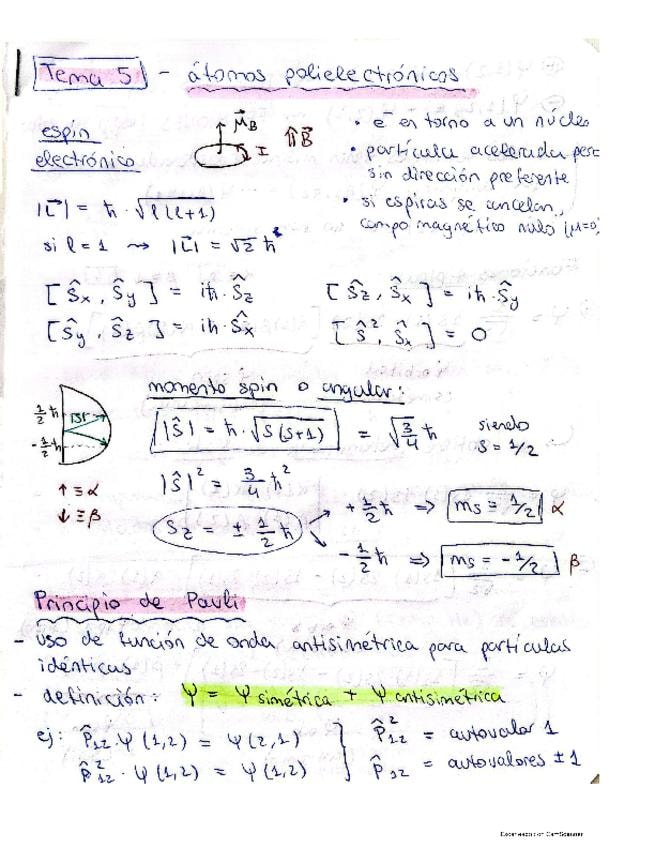 Tema 5 - átomos polielectrónicos
espin
electrónico
μ⃗_B
I
⇑B⃗
• e⁻ en torno a un núcleo
• partícula acelerada pero
sin dirección preferente
• si espiras se cancelan,
campo magnético nulo (μ=0)
|L⃗| = ħ · √l(l+1)
si l = 1 ⇝ |L⃗| = √2 ħ
[Ŝx, Ŝy] = iħ · Ŝz
[Ŝz, Ŝx] = iħ · Ŝy
[Ŝy, Ŝz] = iħ · Ŝx
[Ŝ², Ŝx] = 0
momento spin o angular:
½ ħ
|S|
-½ ħ
↑ ≡ α
↓ ≡ β
|Ŝ| = ħ · √S(S+1) = √3/4 ħ
siendo
S = 1/2
|Ŝ|² = 3/4 ħ²
Sz = ± 1/2 ħ
+ 1/2 ħ ⇒ ms = 1/2 α
- 1/2 ħ ⇒ ms = - 1/2 β
Principio de Pauli
- uso de función de onda antisimétrica para partículas
idénticas
- definición: Ψ = Ψ simétrica + Ψ antisimétrica
ej: P̂₁₂ · Ψ (1,2) = Ψ (2,1)
P̂₁₂² = autovalor 1
P̂₁₂² · Ψ (1,2) = Ψ (1,2)
P̂₁₂ = autovalores ± 1
Escaneado con CamScanner